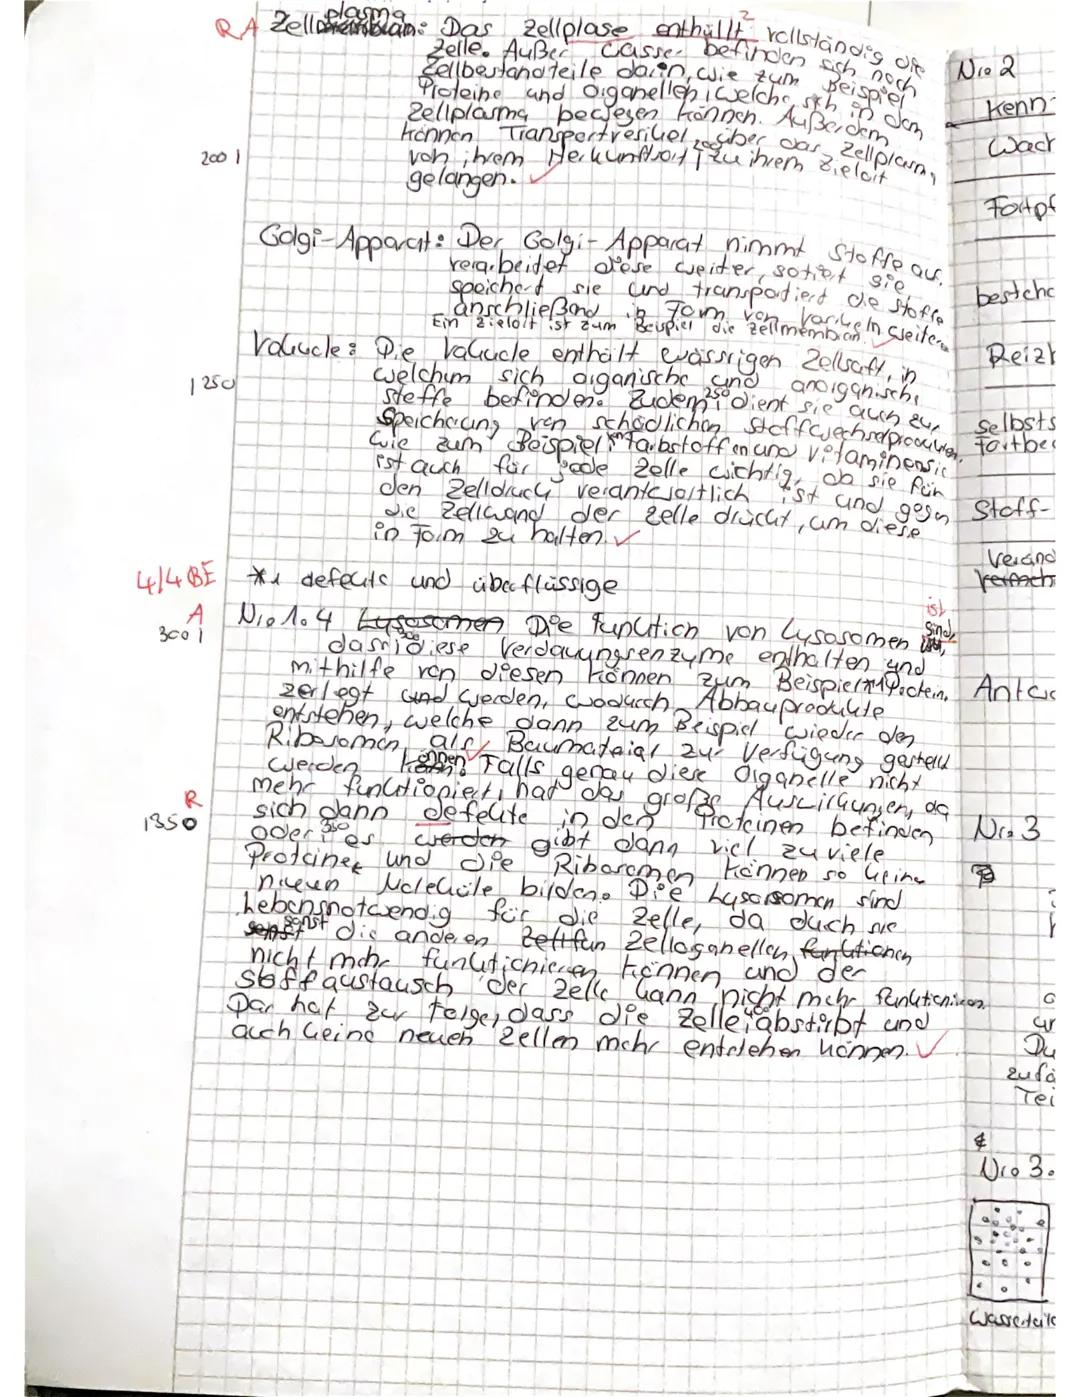 R A Zellplasma: Das Zellplase enthüllt ² vollständig die
Zelle. Außer Wasser befinden sich noch
Zellbestandteile darin, wie zum Beispiel
Proteine und Organellen, welche sich in dem
Zellplasma bewegen können. Außerdem
können Transportvesikel über das Zellplasma
200 | von ihrem Herkunftsort 200 zu ihrem Zielort
gelangen. ✓
Golgi-Apparat: Der Golgi-Apparat nimmt Stoffe auf,
verarbeitet diese weiter, sotiert sie
speichert sie und transportiert die Stoffe
anschließend in Form von Vesikeln weiter.
Ein Zielort ist zum Beispiel die Zellmembran. ✓
Vakuole: Die Vakuole enthält wässrigen Zellsaft, in
welchem sich organische und anorganische
1250 Stoffe befinden. Zudem 250 dient sie auch zur
Speicherung von schädlichen Stoffwechselprodukten,
wie zum Beispiel Farbstoffen und Vitaminen. Sie
ist auch für jede Zelle wichtig, da sie für
den Zelldruck verantwortlich ist und gegen
die Zellwand der Zelle drückt, um diese
in Form zu halten. ✓
4/4 BE *1 defekte und überflüssige
A Nr. 1.4 Lysosomen Die Funktion von Lysosomen ist
300 | dass 300 diese Verdauungsenzyme enthalten und
mithilfe von diesen können zum Beispiel *1 Protein.
zerlegt und werden, wodurch Abbauprodukte
entstehen, welche dann zum Beispiel wieder den
Ribosomen als Baumaterial zur Verfügung gestellt
werden können. ✓ Falls genau diese Organelle nicht
mehr funktioniert, hat das große Auswirkungen, da
R sich dann defekte in den Proteinen befinden
1350 oder 350 es werden gibt dann viel zu viele
Proteine und die Ribosomen können so keine
neuen Moleküle bilden. Die Lysosomen sind
Lebensnotwendig für die Zelle, da duch sie
sonst sonst die anderen Zellfun Zelloganellen funktionen
nicht mehr funktionieren können und der
Stoffaustausch der Zelle kann nicht mehr funktionieren.
Das hat zur Folge, dass die Zelle 400 abstirbt und
auch keine neuen Zellen mehr entstehen können. ✓
Nr. 2
Kenn-
Wach
Fortpf
bestehe
Reizb
selbsts
Fortbe
Stoff-
Nr. 3
Du
zufä
Tei
Nr. 3.
Wasserteile